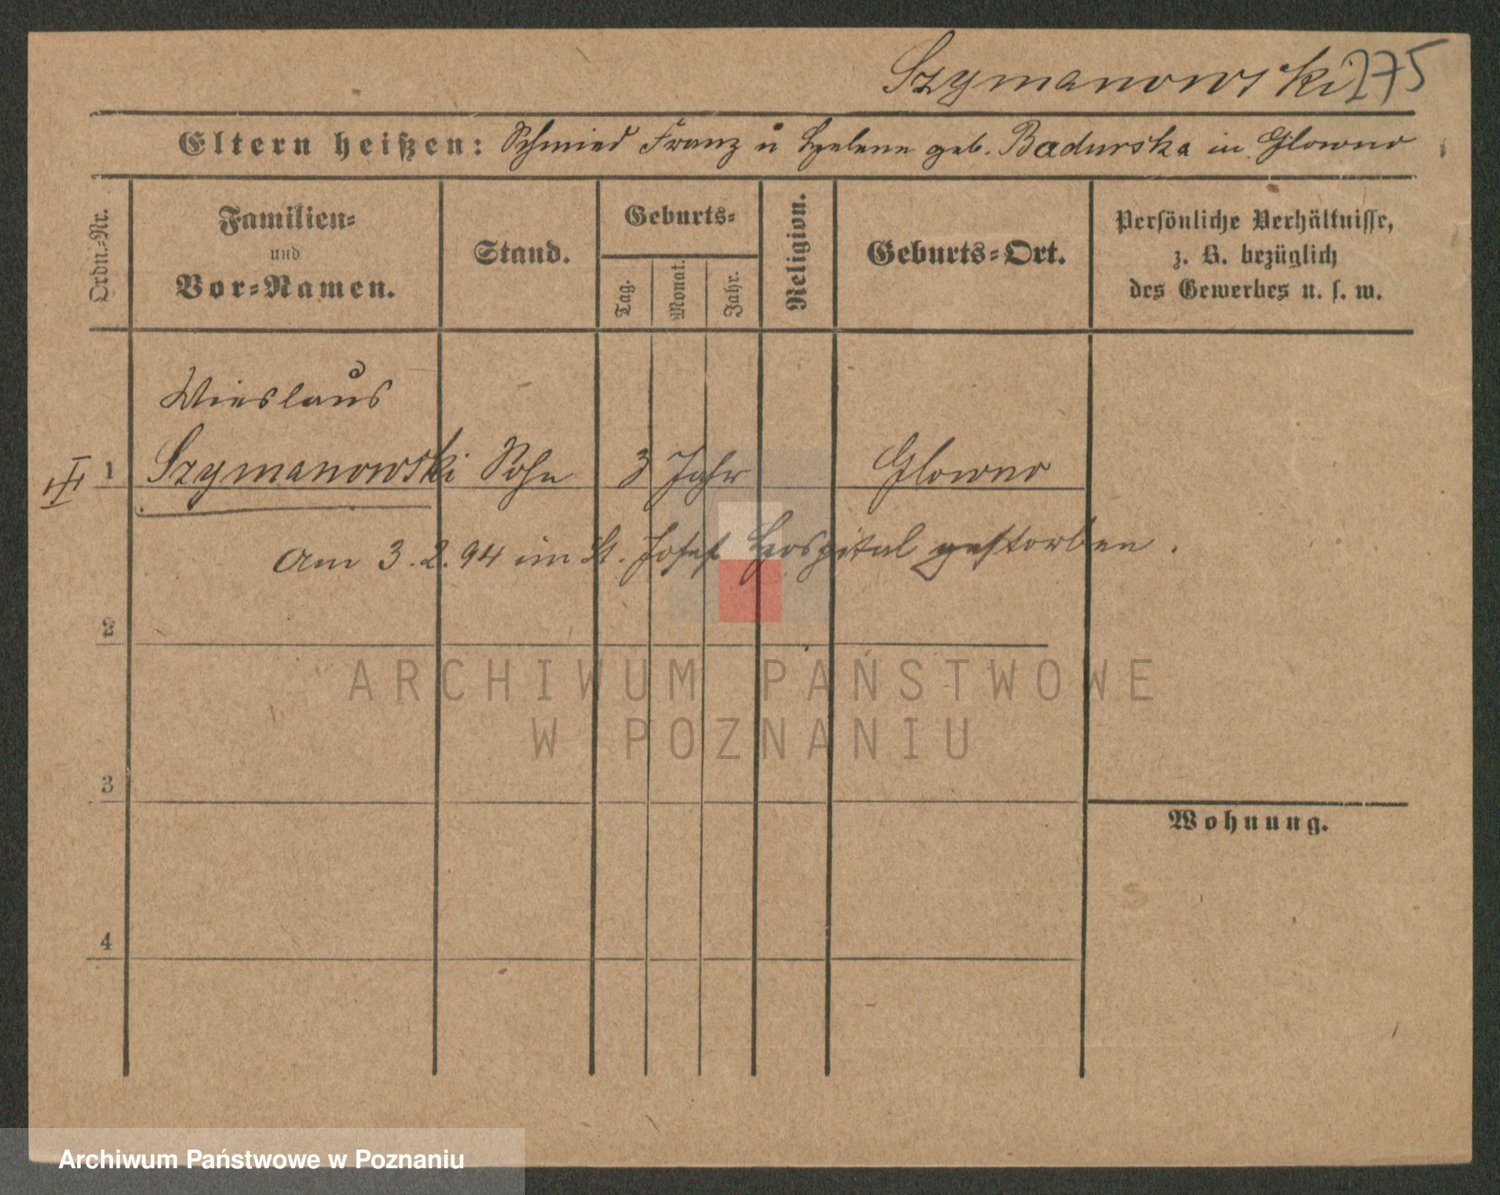 Szymanowski 275
Eltern heißen: Schmied Franz u Helene geb. Badurska in Glowno
Ordn.-Nr.
Familien- und Vor-Namen.
Stand.
Geburts-
Tag.
Monat.
Jahr.
Religion.
Geburts-Ort.
Persönliche Verhältnisse,
z. B. bezüglich
des Gewerbes u. s. w.
Wieslaus
1 Szymanowski Sohn 3 Jahr Glowno
Am 3.2.94 im St. Josef Hospital gestorben.
2
ARCHIWUM PAŃSTWOWE
W POZNANIU
3
Wohnung.
4
Archiwum Państwowe w Poznaniu